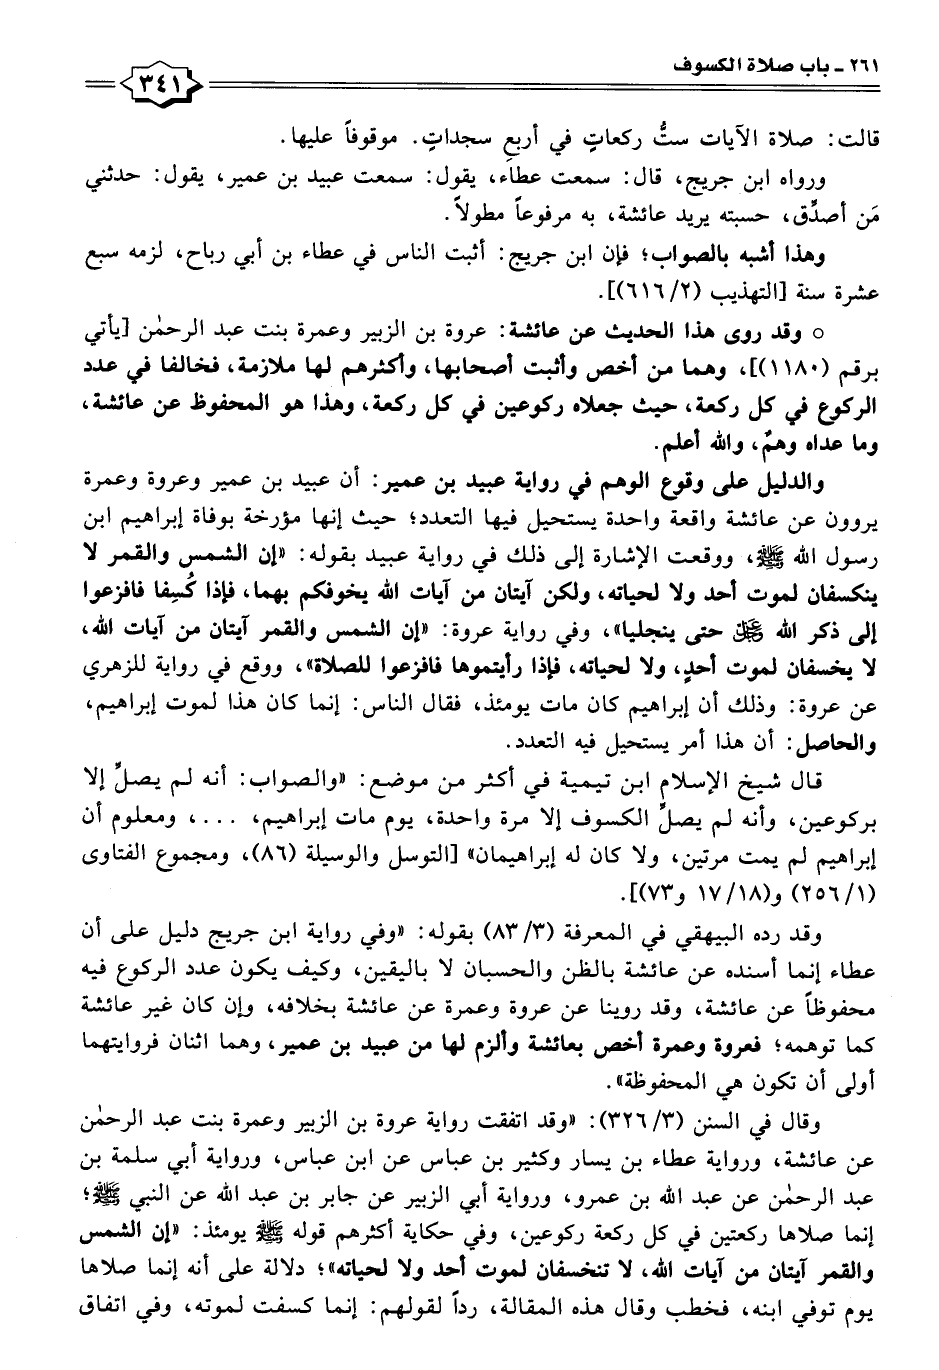 ٢٦١ - باب صلاة الكسوف
٣٤١
قالت: صلاة الآيات ستُّ ركعاتٍ في أربعِ سجداتٍ. موقوفاً عليها.
ورواه ابن جريج، قال: سمعت عطاء، يقول: سمعت عبيد بن عمير، يقول: حدثني
مَن أصدِّق، حسبته يريد عائشة، به مرفوعاً مطولاً.
وهذا أشبه بالصواب؛ فإن ابن جريج: أثبت الناس في عطاء بن أبي رباح، لزمه سبع
عشرة سنة [التهذيب (٦١٦/٢)].
○ وقد روى هذا الحديث عن عائشة: عروة بن الزبير وعمرة بنت عبد الرحمٰن [يأتي
برقم (١١٨٠)]، وهما من أخص وأثبت أصحابها، وأكثرهم لها ملازمة، فخالفا في عدد
الركوع في كل ركعة، حيث جعلاه ركوعين في كل ركعة، وهذا هو المحفوظ عن عائشة،
وما عداه وهمٌ، والله أعلم.
والدليل على وقوع الوهم في رواية عبيد بن عمير: أن عبيد بن عمير وعروة وعمرة
يروون عن عائشة واقعة واحدة يستحيل فيها التعدد؛ حيث إنها مؤرخة بوفاة إبراهيم ابن
رسول الله ﷺ، ووقعت الإشارة إلى ذلك في رواية عبيد بقوله: «إن الشمس والقمر لا
ينكسفان لموت أحد ولا لحياته، ولكن آيتان من آيات الله يخوفكم بهما، فإذا كُسِفا فافزعوا
إلى ذكر الله ﷿ حتى ينجليا»، وفي رواية عروة: «إن الشمس والقمر آيتان من آيات الله،
لا يخسفان لموت أحدٍ، ولا لحياته، فإذا رأيتموها فافزعوا للصلاة»، ووقع في رواية للزهري
عن عروة: وذلك أن إبراهيم كان مات يومئذ، فقال الناس: إنما كان هذا لموت إبراهيم،
والحاصل: أن هذا أمر يستحيل فيه التعدد.
قال شيخ الإسلام ابن تيمية في أكثر من موضع: «والصواب: أنه لم يصلِّ إلا
بركوعين، وأنه لم يصلِّ الكسوف إلا مرة واحدة، يوم مات إبراهيم، ...، ومعلوم أن
إبراهيم لم يمت مرتين، ولا كان له إبراهيمان» [التوسل والوسيلة (٨٦)، ومجموع الفتاوى
(٢٥٦/١) و(١٧/١٨ و٧٣)].
وقد رده البيهقي في المعرفة (٨٣/٣) بقوله: «وفي رواية ابن جريج دليل على أن
عطاء إنما أسنده عن عائشة بالظن والحسبان لا باليقين، وكيف يكون عدد الركوع فيه
محفوظاً عن عائشة، وقد روينا عن عروة وعمرة عن عائشة بخلافه، وإن كان غير عائشة
كما توهمه؛ فعروة وعمرة أخص بعائشة وألزم لها من عبيد بن عمير، وهما اثنان فروايتهما
أولى أن تكون هي المحفوظة».
وقال في السنن (٣٢٦/٣): «وقد اتفقت رواية عروة بن الزبير وعمرة بنت عبد الرحمٰن
عن عائشة، ورواية عطاء بن يسار وكثير بن عباس عن ابن عباس، ورواية أبي سلمة بن
عبد الرحمٰن عن عبد الله بن عمرو، ورواية أبي الزبير عن جابر بن عبد الله عن النبي ﷺ؛
إنما صلاها ركعتين في كل ركعة ركوعين، وفي حكاية أكثرهم قوله ﷺ يومئذ: «إن الشمس
والقمر آيتان من آيات الله، لا تنخسفان لموت أحد ولا لحياته»؛ دلالة على أنه إنما صلاها
يوم توفي ابنه، فخطب وقال هذه المقالة، رداً لقولهم: إنما كسفت لموته، وفي اتفاق